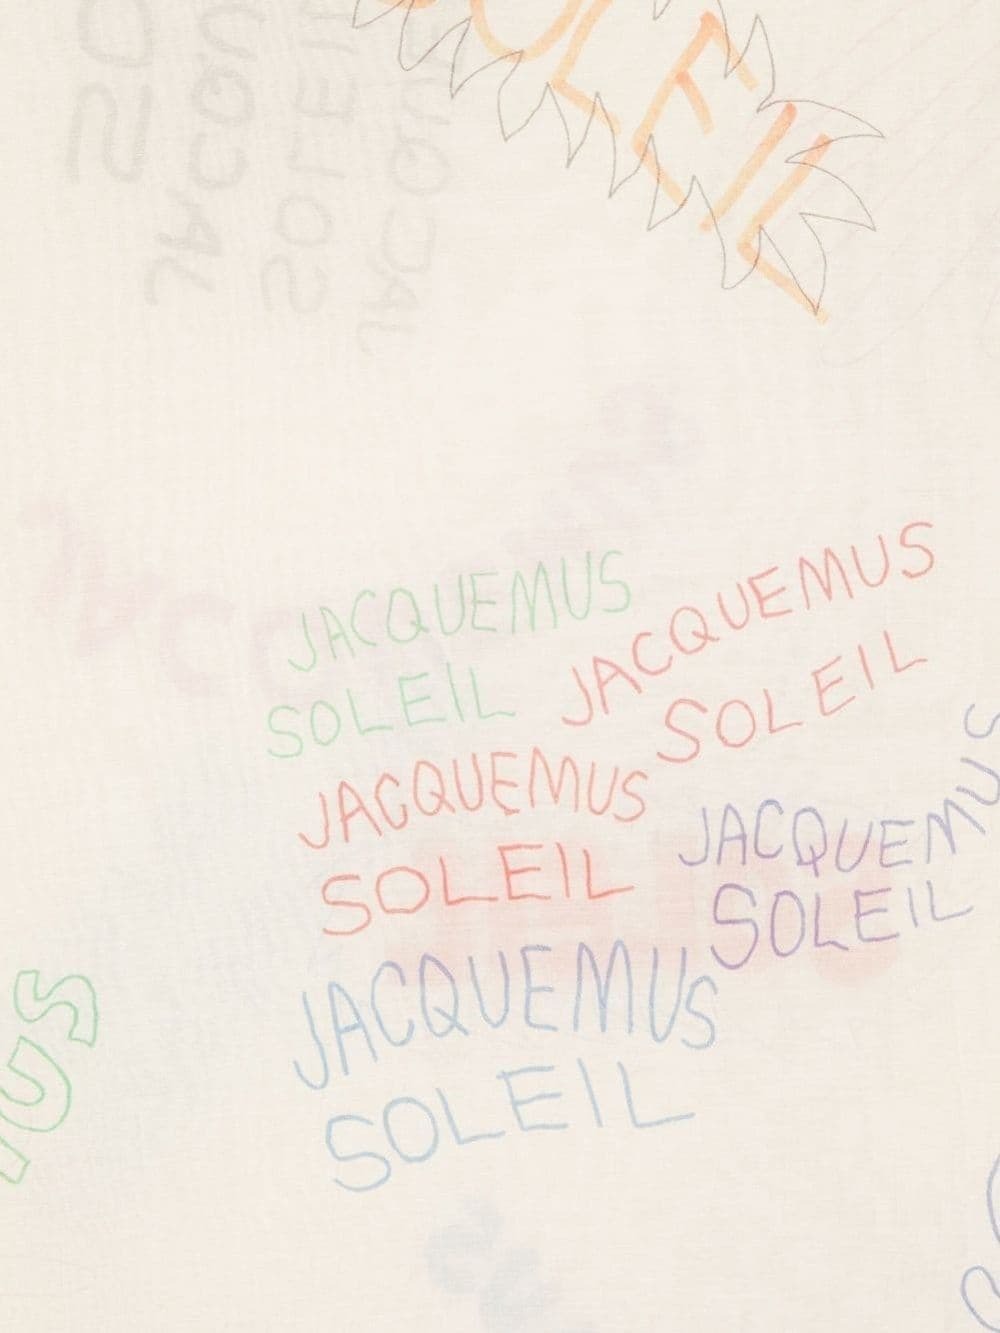 SOLEIL
JACQUEMUS
SOLEIL
JACQUEMUS
SOLEIL
JACQUEMUS
SOLEIL
JACQUEMUS
SOLEIL
JACQUEMUS
SOLEIL
US